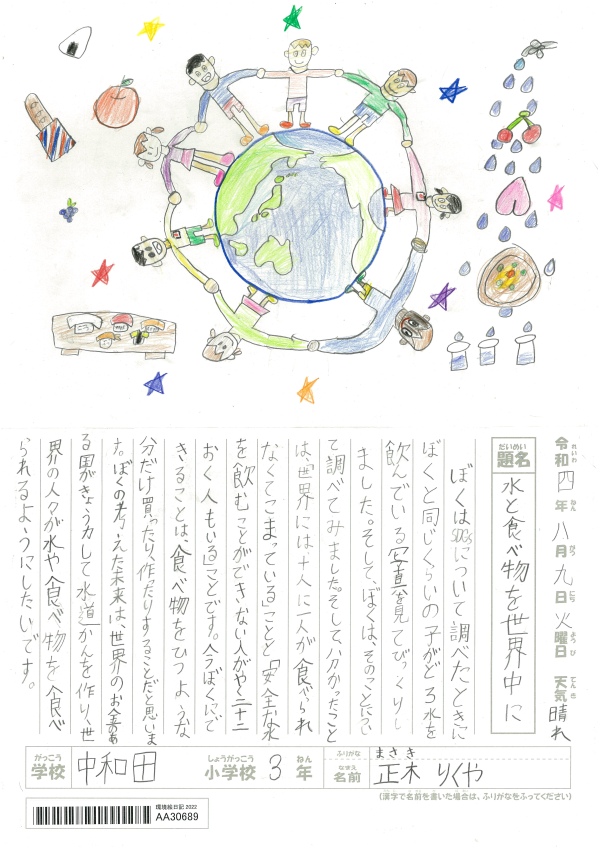 令和四年八月九日火曜日 天気 晴れ
れいわ ねん がつ にち ようび てんき
だいめい
題名 水と食べ物を世界中に
ぼくはSDGsについて調べたときに
ぼくと同じくらいの子がどろ水を
飲んでいる写真を見てびっくりし
ました。そして、ぼくは、そのことについ
て調べてみました。そして、分かったこと
は、「世界には十人に一人が食べられ
なくてこまっている」ことと「安全な水
を飲むことができない人がやく二十二
おく人もいる」ことです。今ぼくにで
きることは、食べ物をひつような
分だけ買ったり、作ったりすることだと思いま
す。ぼくの考えた未来は、世界のお金のあ
る国がきょう力して水道かんを作り、世
界の人々が水や食べ物を食べ
られるようにしたいです。
がっこう しょうがっこう ねん ふりがな まさき
学校 中和田 小学校 3年 なまえ 名前 正木りくや
(漢字で名前を書いた場合は、ふりがなをふってください)
環境絵日記 2022
AA30689